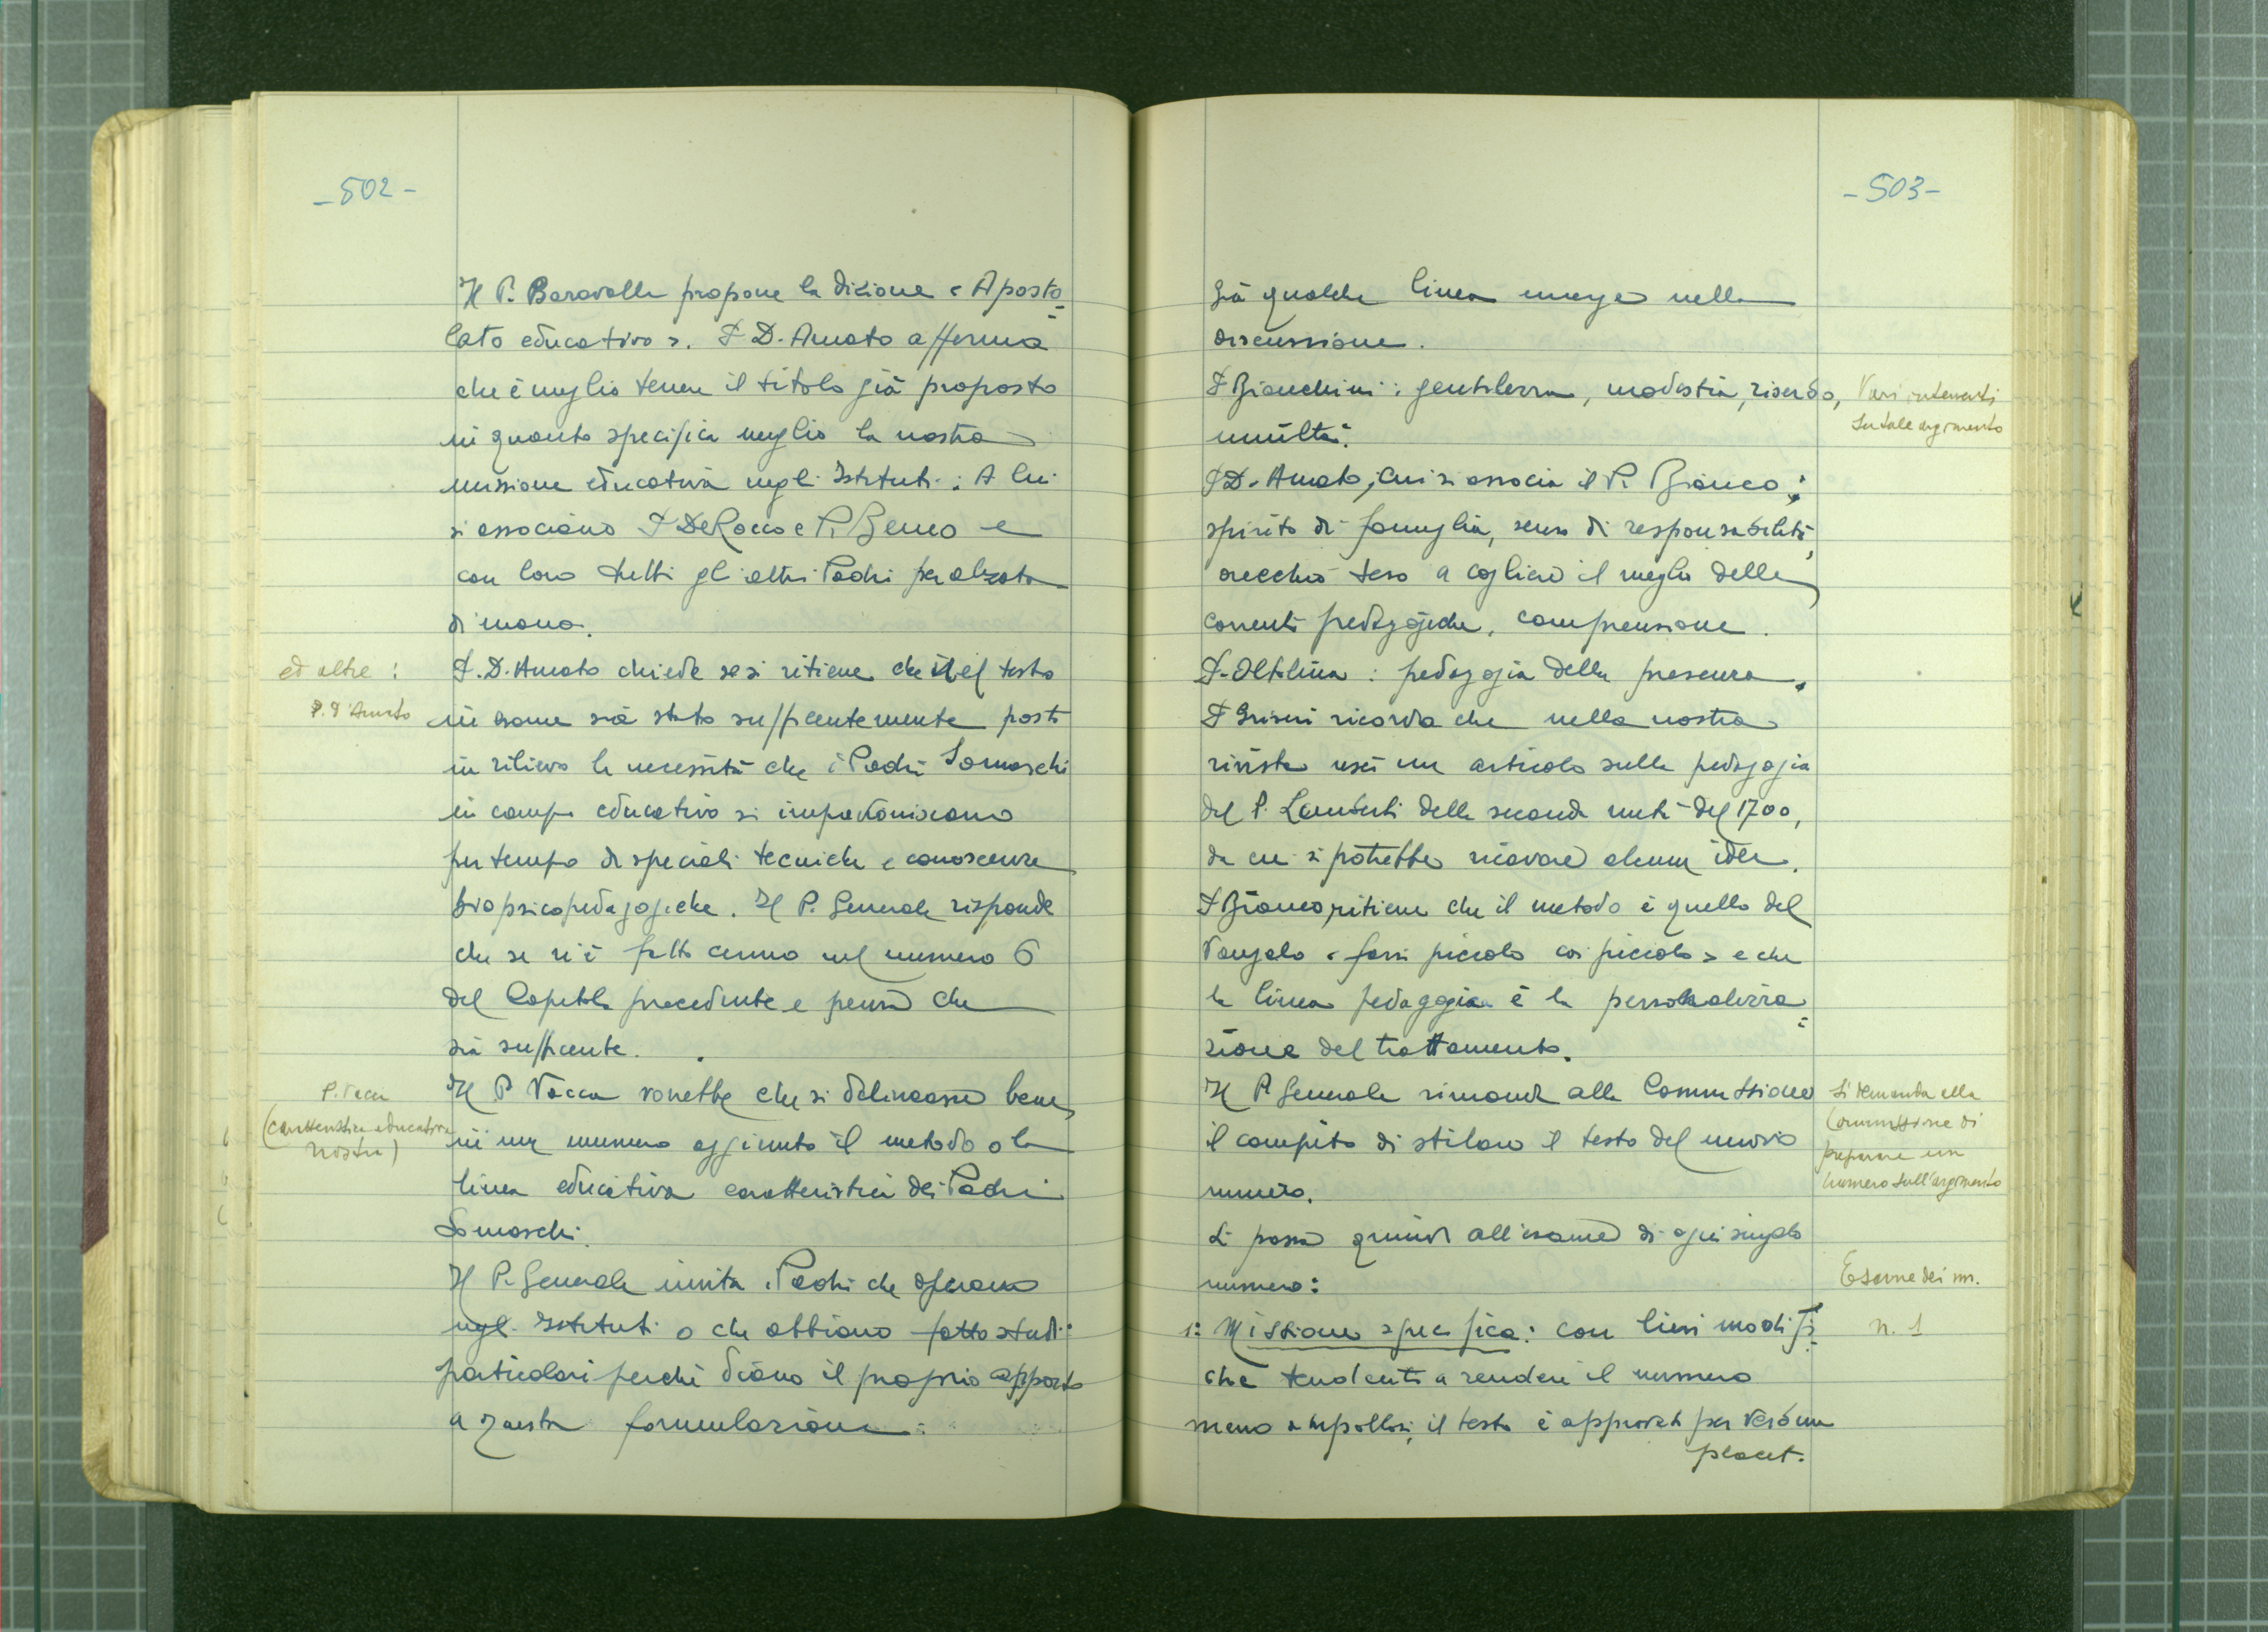 -502-
Il P. Baravalle propone la dizione « Aposto=
lato educativo ». P. D. Amato afferma
che è meglio tenere il titolo già proposto
in quanto specifica meglio la nostra
missione educativa negli Istituti. A lui
si associano P. De Rocco e P. Bianco e
con loro tutti gli altri Padri per alzata
di mano.
ed altre :
P. D'Amato
P. D. Amato chiede se si ritiene che nel testo
in esame sia stato sufficentemente posto
in rilievo la necessità che i Padri Somaschi
in campo educativo si impadroniscano
per tempo di speciali tecniche e conoscenze
biopsicopedagogiche. Il P. Generale risponde
che se n'è fatto cenno nel numero 6
del Capitolo precedente e pensa che
sia sufficente.
P. Vacca
(caratteristica educativa
nostra)
Il P. Vacca vorrebbe che si delineasse bene,
in un numero aggiunto il metodo o la
linea educativa caratteristica dei Padri
Somaschi.
Il P. Generale invita i Padri che operano
negli Istituti o che abbiano fatto studi
particolari perché diano il proprio apporto
a questa formulazione.
-503-
Già qualche linea emerge nella
discussione.
P. Bianchini : gentilezza, modestia, riserbo,
umiltà.
Vari interventi
su tale argomento
P. D. Amato, cui si associa il P. Bianco :
spirito di famiglia, senso di responsabilità,
orecchio teso a cogliere il meglio delle
correnti pedagogiche, comprensione.
P. Oltolina : pedagogia della presenza.
P. Griseri ricorda che nella nostra
rivista uscì un articolo sulla pedagogia
del P. Lamberti della seconda metà del 1700,
da cui si potrebbe ricavare alcune idee.
P. Bianco, ritiene che il metodo è quello del
Vangelo « farsi piccolo coi piccoli » e che
la linea pedagogica è la personalizza=
zione del trattamento.
Il P. Generale rimanda alla Commissione
il compito di stilare il testo del nuovo
numero.
Si demanda alla
Commissione di
preparare un
numero sull'argomento
Si passa quindi all'esame di ogni singolo
numero :
Esame dei nn.
1: Missione specifica : con lievi modifi=
che tendenti a rendere il numero
meno ampolloso, il testo è approvato per verbum
placet.
n. 1